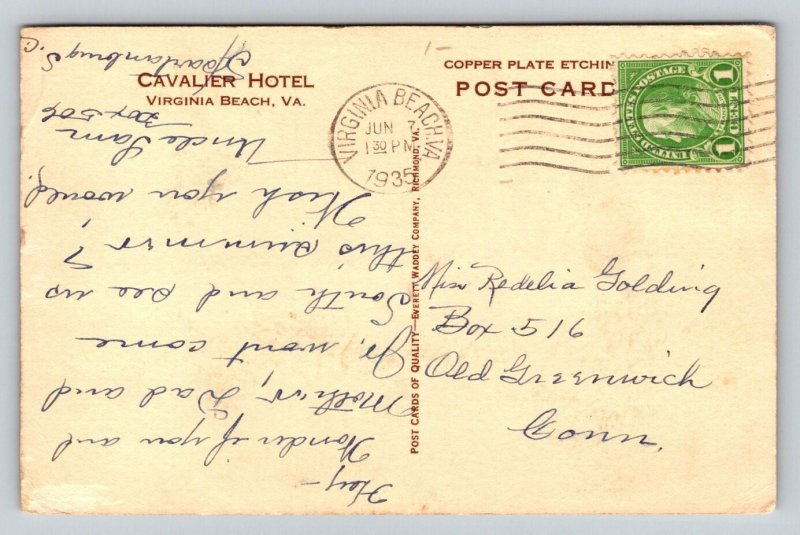 CAVALIER HOTEL
VIRGINIA BEACH, VA.
COPPER PLATE ETCHIN
POST CARD
VIRGINIA BEACH, VA
JUN 7
1 30 PM
1935
UNITED STATES POSTAGE
1 1
Miss Redelia Golding
Box 516
Old Greenwich
Conn.
POST CARDS OF QUALITY—EVERETT WADDEY COMPANY, RICHMOND, VA.
Hey—
Wonder if you and
Mother, Dad and
Jr. wont come
South and see us
this summer?
Wish you would
Uncle Sam
Box 506
Spartanburg S.C.
1-